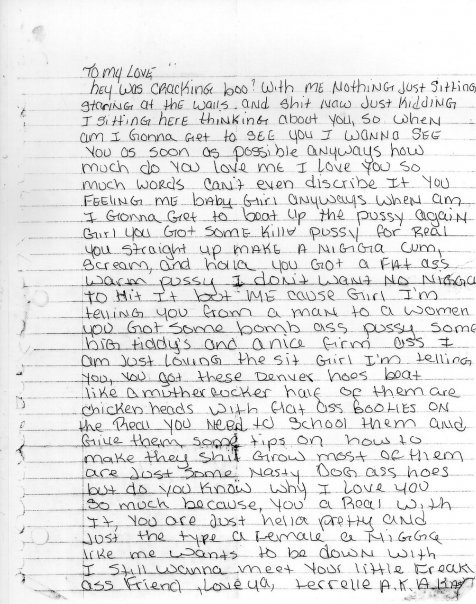 To my LOVE
hey was CRACking boo? With me Nothing Just sitting
staring at the walls. and shit Naw Just Kidding
I sitting here thinking about you, so when
am I Gonna Get to SEE you I wanna SEE
You as soon as possible anyways how
much do you love me I love you so
much words can't even discribe It You
FEELING me baby Gurl anyways when am
I Gonna Get to beat up the pussy again
Gurl you Got some killa pussy for Real
you straight up make A NIGGGa cum,
scream, and holla you Got a FAt ass
warm pussy I don't want No NIGGGa
to Hit It but ME cause Girl I'm
telling you from a man to a women
you Got some bomb ass pussy some
big tiddy's and a nice firm ass I
am Just loving the sit Girl I'm telling
you, you got these Denver hoes beat
like a mutherfucker half of them are
chicken heads with flat ass booties ON
the Real you need to school them and
Give them some tips on how to
make they shit Grow most of them
are Just some Nasty Dog ass hoes
but do you know why I love you
so much because, you a Real with
It, you are Just hella pretty and
Just the type a Female a NIGGGa
like me wants to be down with
I still wanna meet Your little Freak
ass Friend, Love ya, terrelle A.K.A.